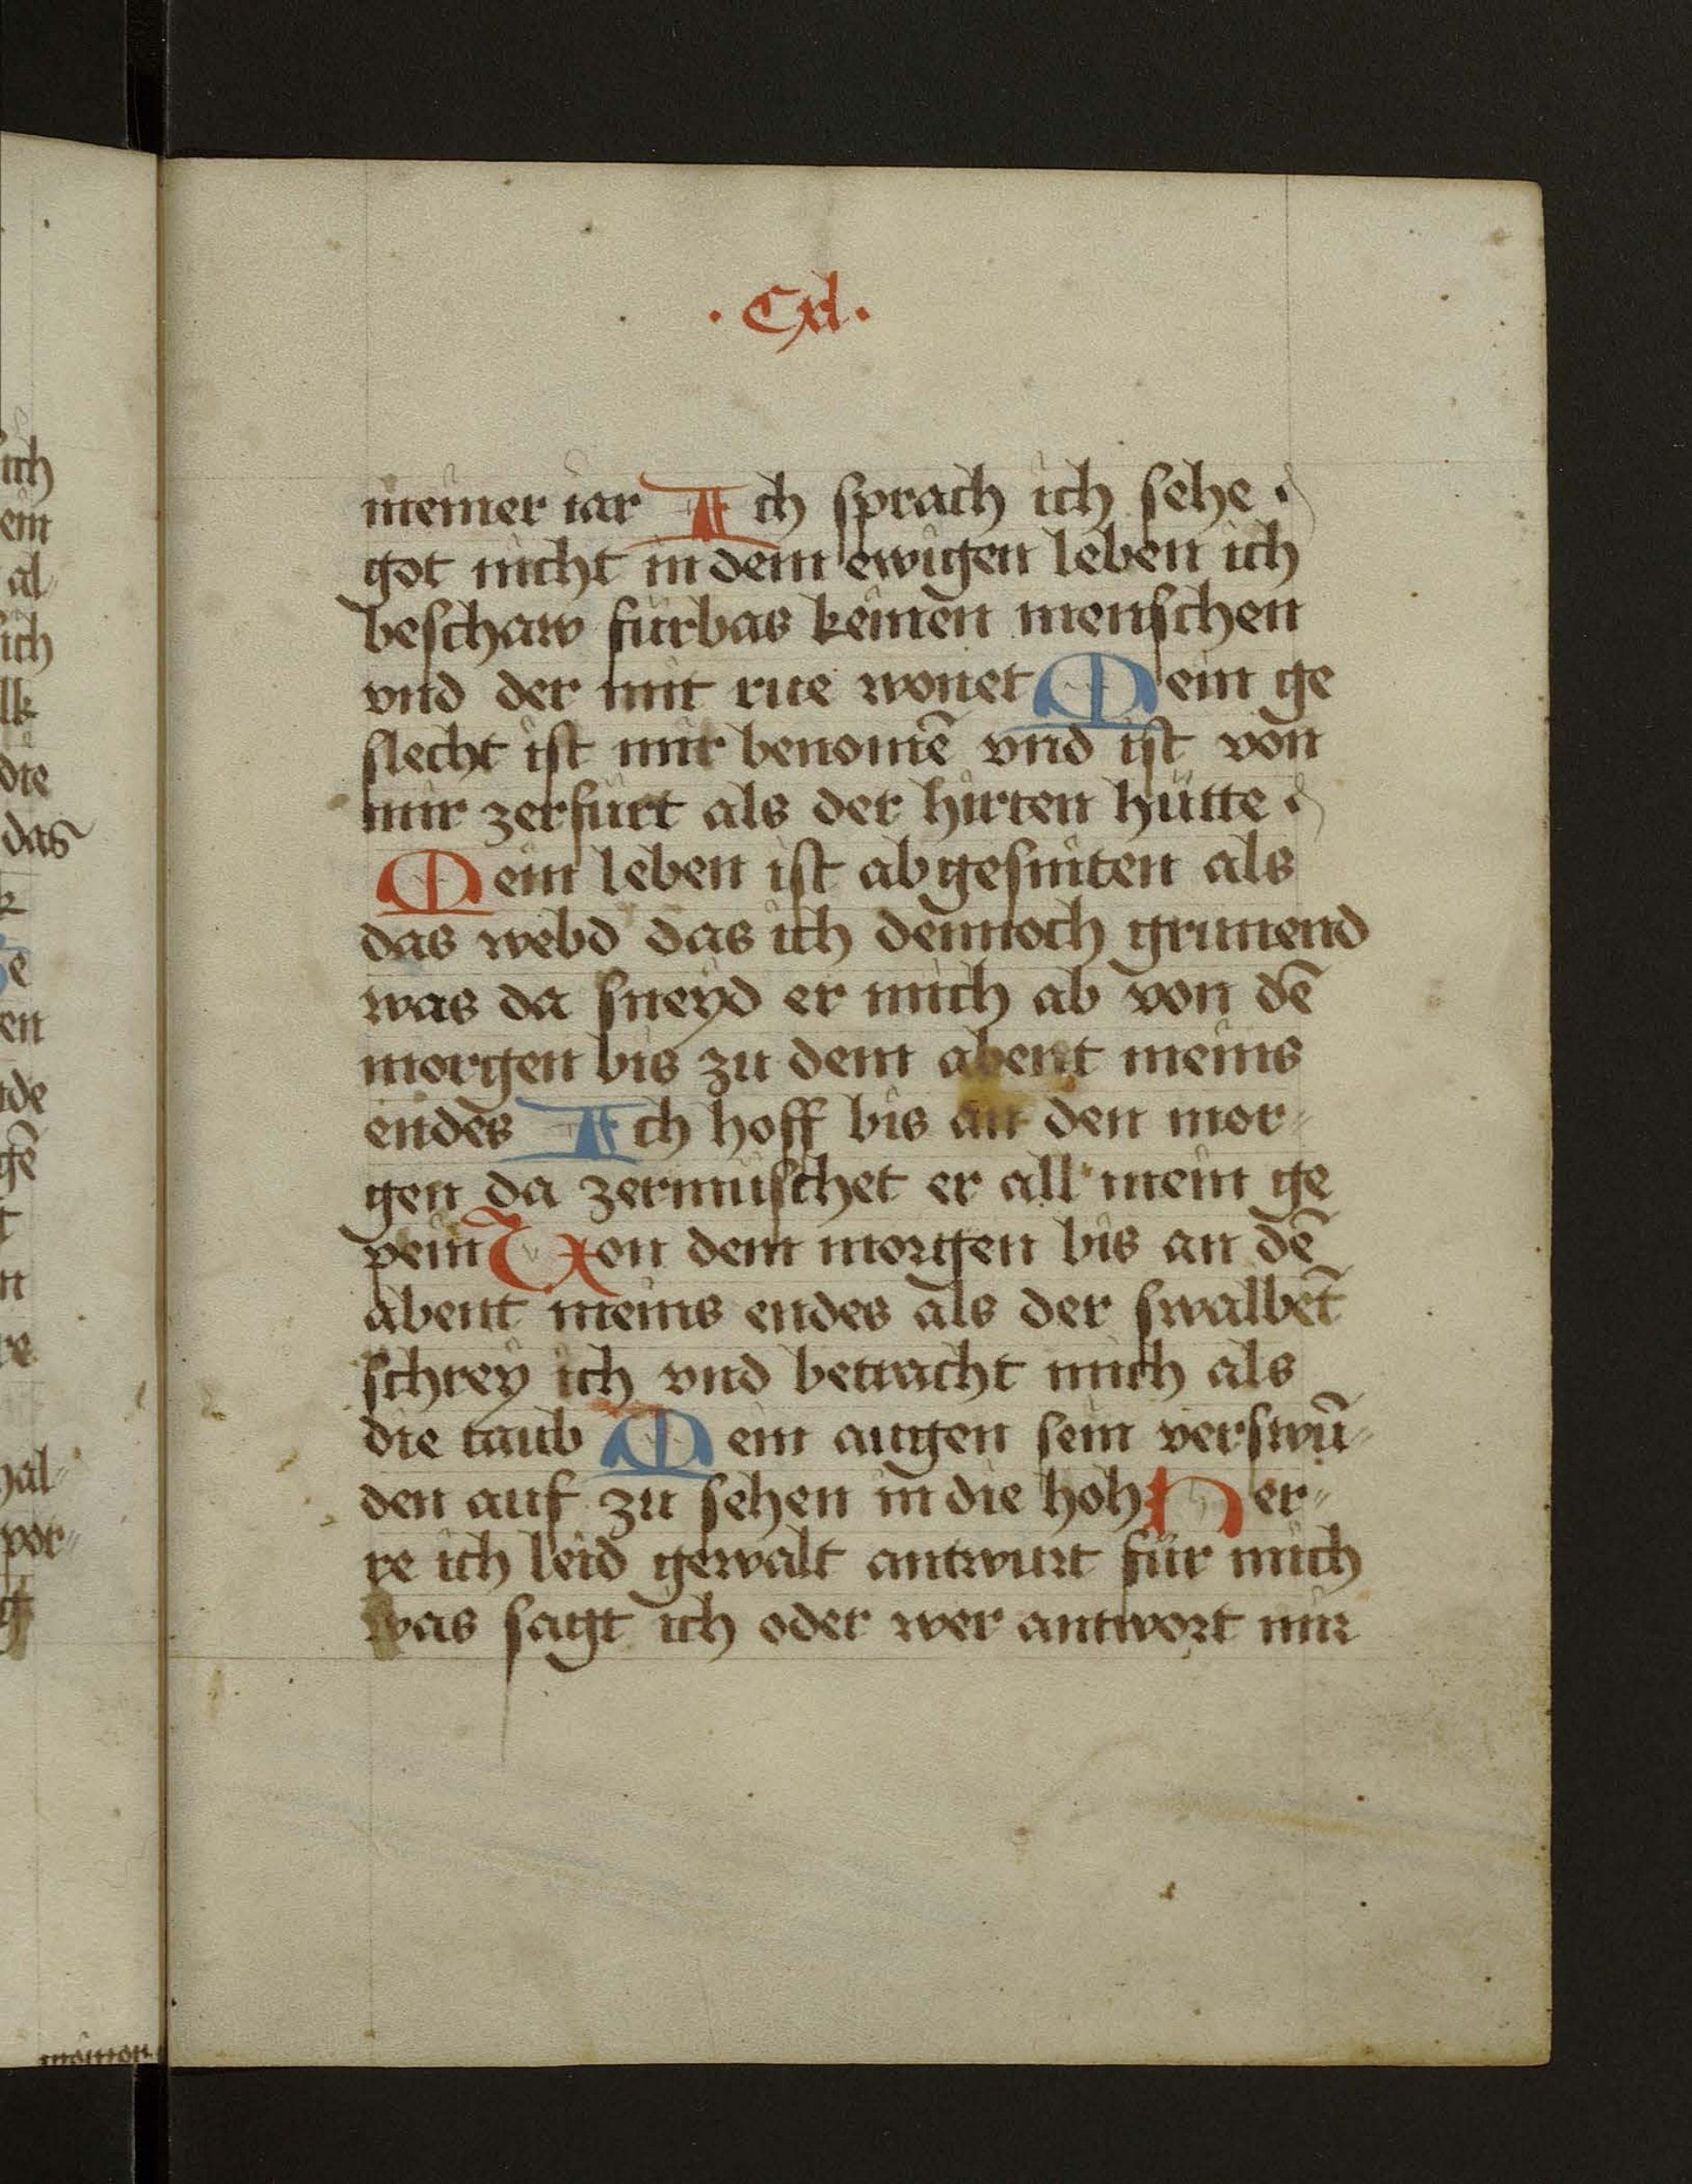 · Cxl ·
meiner iar Ich sprach ich sehe
got nicht in dem ewigen leben ich
beschaw furbas keinen menschen
vnd der mit rue wonet Mein ge
slecht ist mir benomē vnd ist von
mir zerfurt als der hirten hütte
Mein leben ist abgesniten als
das webd das ich dennoch grunend
was da sneyd er mich ab von dē
morgen bis zu dem abent meins
endes Ich hoff bis an den mor⸗
gen da zermuschet er all mein ge
pein Von dem morgen bis an dē
abent meins endes als der swalbē
schrey ich vnd betracht mich als
die taub Mein augen sein verswū⸗
den auf zu sehen in die hoh Her⸗
re ich leid gewalt antwurt für mich
was sagt ich oder wer antwort mir
ich
ein
al
ich
lk
die
das
e
en
de
gē
t
n
re
hal⸗
vor⸗